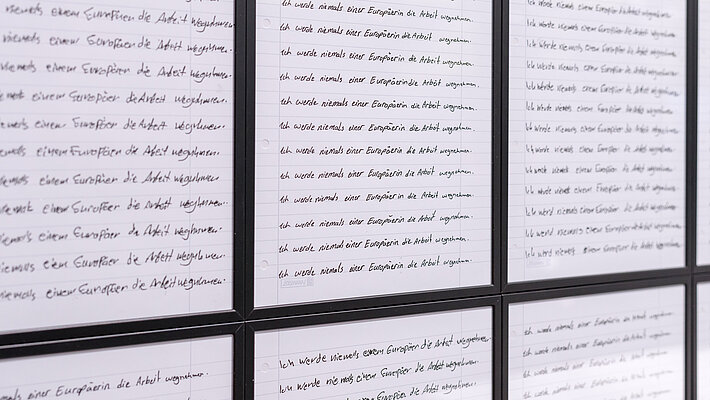 einem Europäer die Arbeit wegnehmen.
niemals einem Europäer die Arbeit wegnehmen.
niemals einem Europäer die Arbeit wegnehmen.
einem Europäer die Arbeit wegnehmen.
niemals einem Europäer die Arbeit wegnehmen.
niemals einem Europäer die Arbeit wegnehmen.
niemals einem Europäer die Arbeit wegnehmen.
einem Europäer die Arbeit wegnehmen.
niemals einem Europäer die Arbeit wegnehmen.
niemals einem Europäer die Arbeit wegnehmen.
niemals einem Europäer die Arbeit wegnehmen.
Ich werde niemals einer Europäerin die Arbeit wegnehmen.
Ich werde niemals einer Europäerin die Arbeit wegnehmen.
Ich werde niemals einer Europäerin die Arbeit wegnehmen.
Ich werde niemals einer Europäerin die Arbeit wegnehmen.
Ich werde niemals einer Europäerin die Arbeit wegnehmen.
Ich werde niemals einer Europäerin die Arbeit wegnehmen.
Ich werde niemals einer Europäerin die Arbeit wegnehmen.
Ich werde niemals einer Europäerin die Arbeit wegnehmen.
Ich werde niemals einer Europäerin die Arbeit wegnehmen.
Ich werde niemals einer Europäerin die Arbeit wegnehmen.
Ich werde niemals einer Europäerin die Arbeit wegnehmen.
Ich werde niemals einer Europäerin die Arbeit wegnehmen.
Ich werde niemals einem Europäer die Arbeit wegnehmen.
Ich werde niemals einem Europäer die Arbeit wegnehmen.
Ich werde niemals einem Europäer die Arbeit wegnehmen.
Ich werde niemals einem Europäer die Arbeit wegnehmen.
Ich werde niemals einem Europäer die Arbeit wegnehmen.
Ich werde niemals einem Europäer die Arbeit wegnehmen.
Ich werde niemals einem Europäer die Arbeit wegnehmen.
Ich werde niemals einem Europäer die Arbeit wegnehmen.
Ich werde niemals einem Europäer die Arbeit wegnehmen.
Ich werde niemals einem Europäer die Arbeit wegnehmen.
Ich werde niemals einem Europäer die Arbeit wegnehmen.
Ich werd niemals einem Europäer die Arbeit wegnehmen.
Ich werd niemals einem Europäer die Arbeit wegnehmen.
einer Europäerin die Arbeit wegnehmen.
Ich werde niemals einem Europäer die Arbeit wegnehmen.
Ich werde niemals einem Europäer die Arbeit wegnehmen.
niemals einem Europäer die Arbeit
Ich werde niemals einer Europäerin die Arbeit wegnehmen.
Ich werde niemals einer Europäerin die Arbeit wegnehmen.
Ich werde niemals einer Europäerin die Arbeit